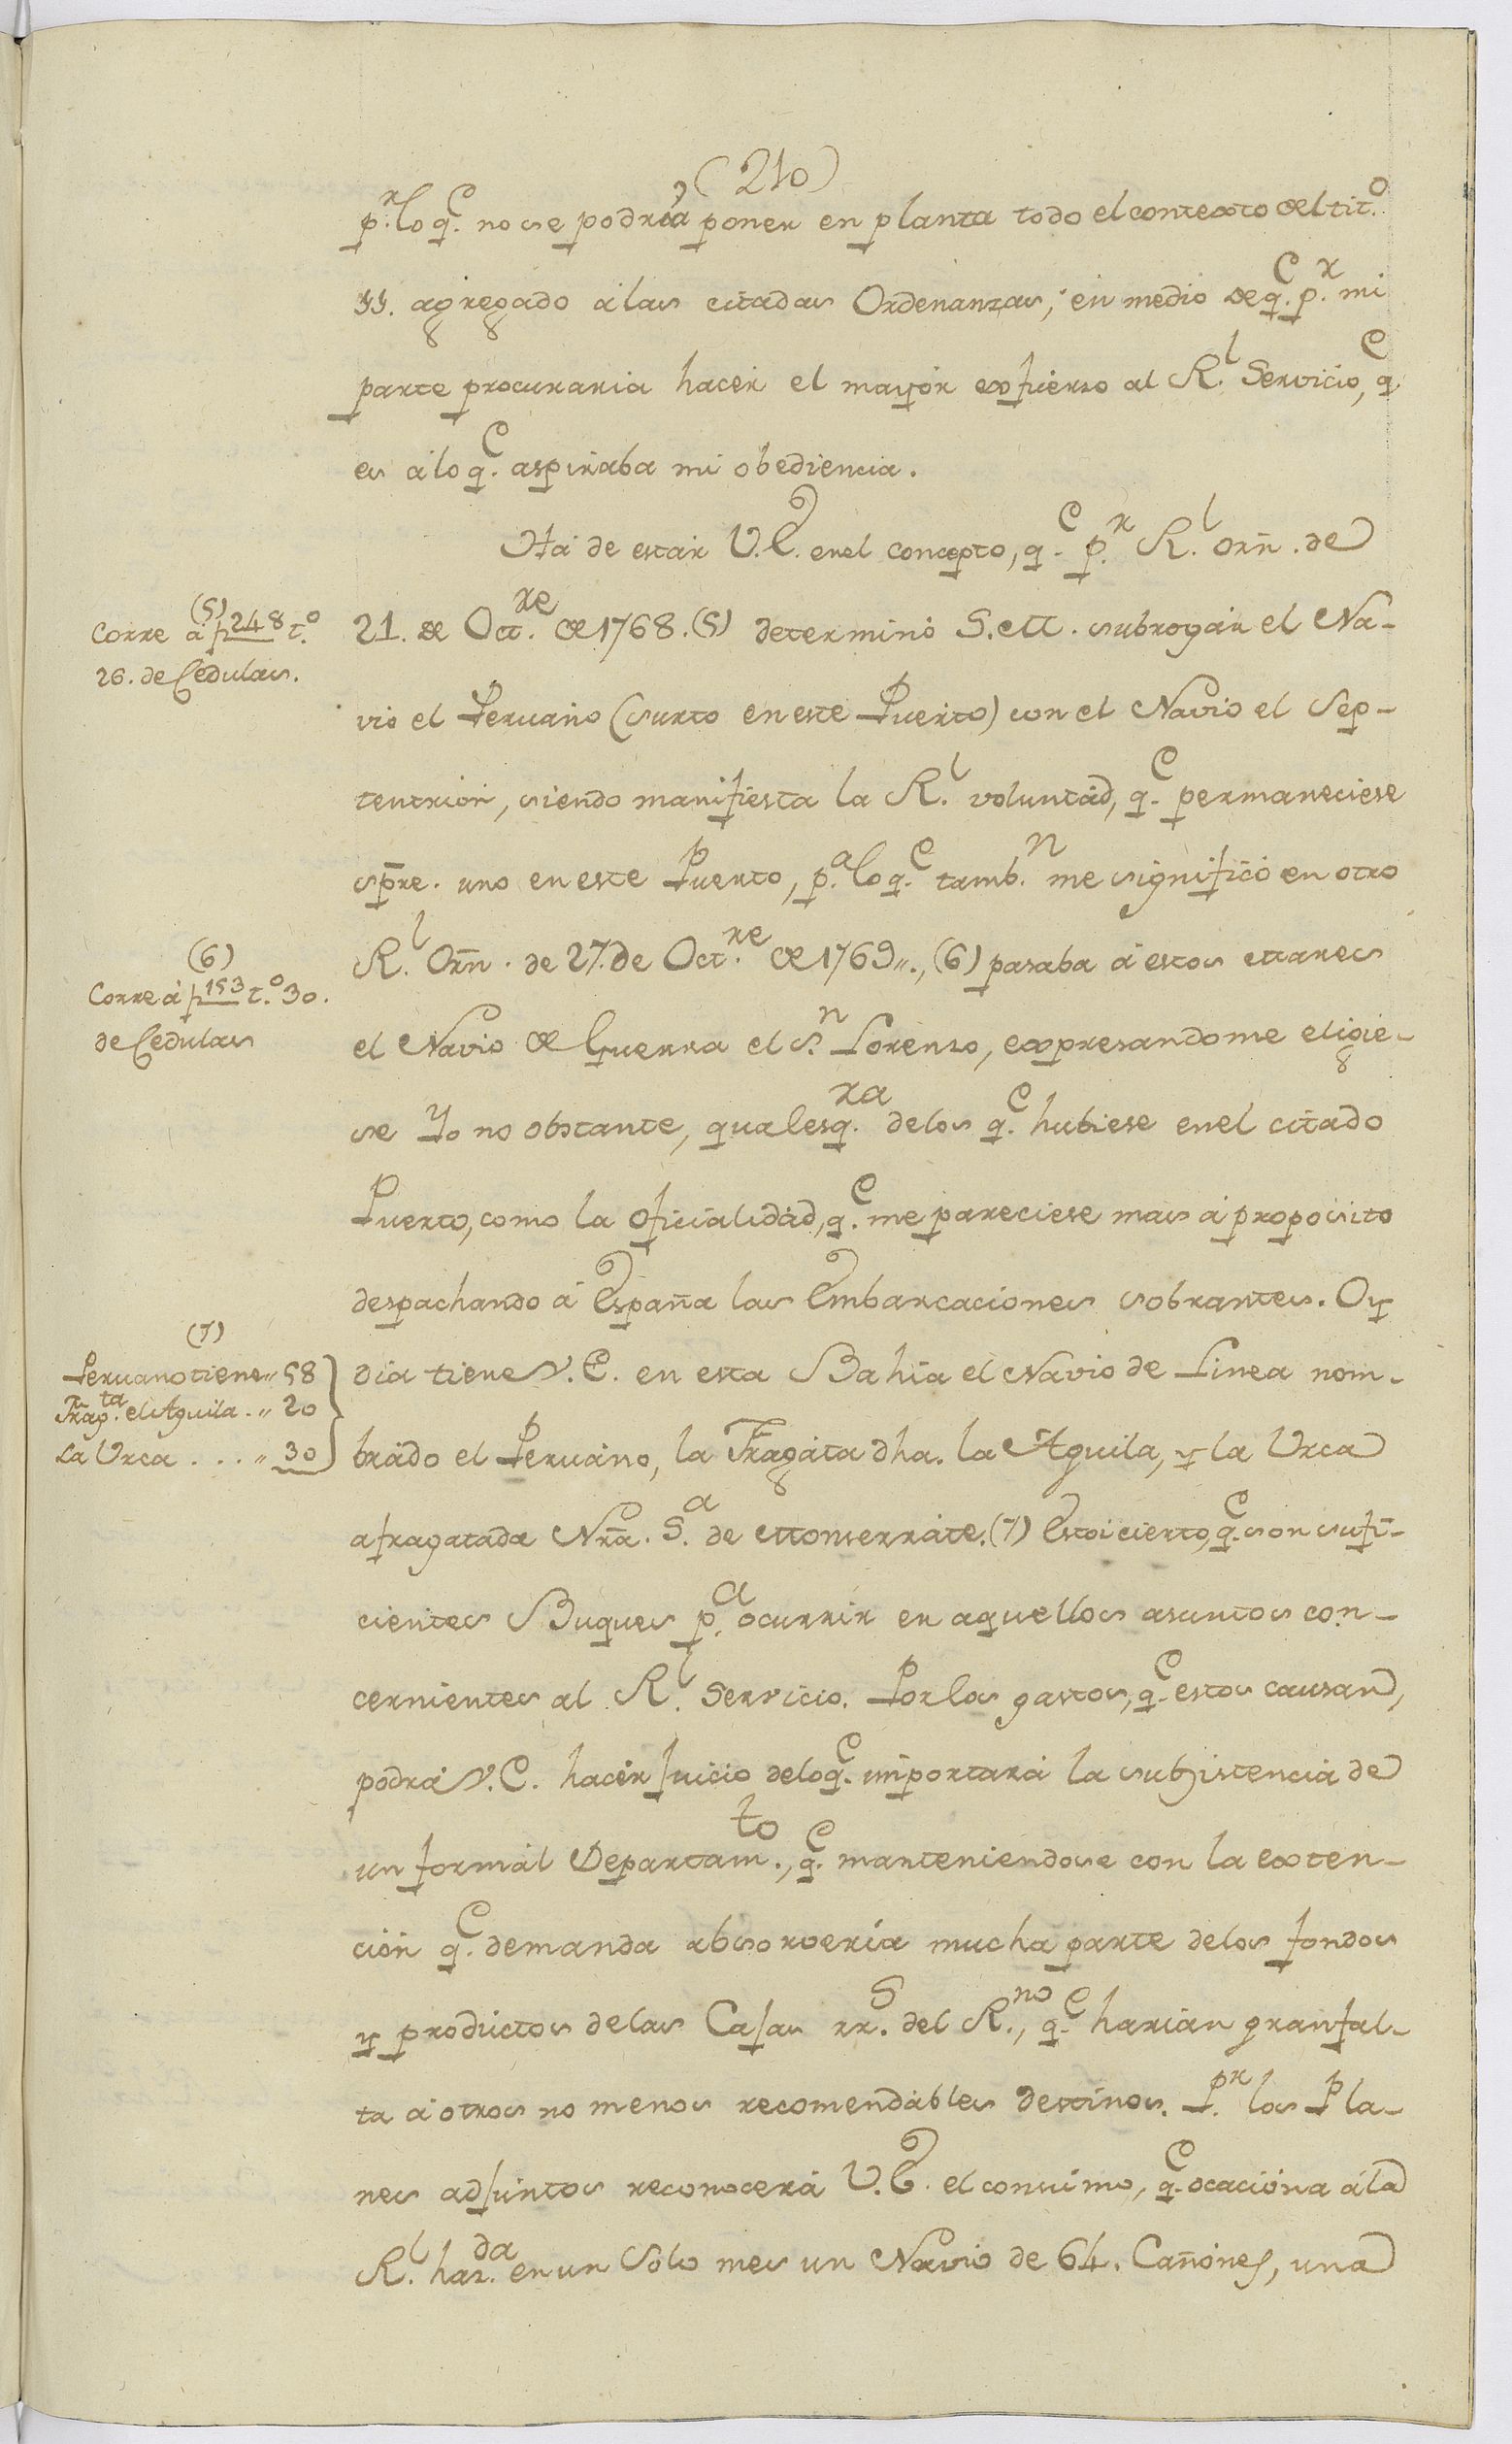 (210)
p.r lo q.e no se podria poner en planta todo el contexto del tit.o
11. agregado à las citadas Ordenanzas, en medio de q.e p.r mi
parte procuraria hacer el mayor exfuerso al R.l Servicio, q.e
es à lo q.e aspiraba mi obediencia.
Ha de estar V.E. en el concepto, q.e p.r R.l orñ. de
21. de Oct.re de 1768. (5) determinò S.M. subrogar el Na-
vio el Peruano (surto en este Puerto) con el Navio el Sep-
tentrion, siendo manifiesta la R.l voluntad, q.e permaneciese
spre. uno en este Puerto, p.a lo q.e tamb.n me significò en otro
R.l Orñ. de 27. de Oct.re de 1769,,., (6) pasaba à estos Mares
el Navio de Guerra el S.n Lorenso, expresandome eligie-
se Yo no obstante, qualesq.ra de los q.e hubiese en el citado
Puerto, como la oficialidad, q.e me pareciese mas à proposito
despachando à España las Embarcaciones sobrantes. Oy
dia tiene V.E. en esta Bahia el Navio de Linea nom-
brado el Peruano, la Fragata dha. la Aguila, y la Urca
afragatada Nrã. S.a de Monserrate. (7) Estoi cierto, q.e son sufi-
cientes Buques p.a ocurrir en aquellos asuntos con-
cernientes al R.l Servicio. Por los gastos, q.e estos causan,
podrà V.E. hacer juicio de lo q.e importarà la subsistencia de
un formal Departam.to, q.e manteniendose con la exten-
cion q.e demanda absorveria mucha parte de los fondos
y productos de las Cajas rr.s del R.no, q.e harian gran fal-
ta à otros no menos recomendables destinos. P.r los Pla-
nes adjuntos reconocerà V.E. el consumo, q.e ocaciona à la
R.l haz.da en un Solo mes un Navio de 64. Cañones, una
(5)
Corre à f 248 t.o
26. de Cedulas.
(6)
Corre à f 153 t.o 30.
de Cedulas
(7)
Peruano tiene ,, 58
Frag.ta el Aguila . ,, 20
La Urca . . . ,, 30